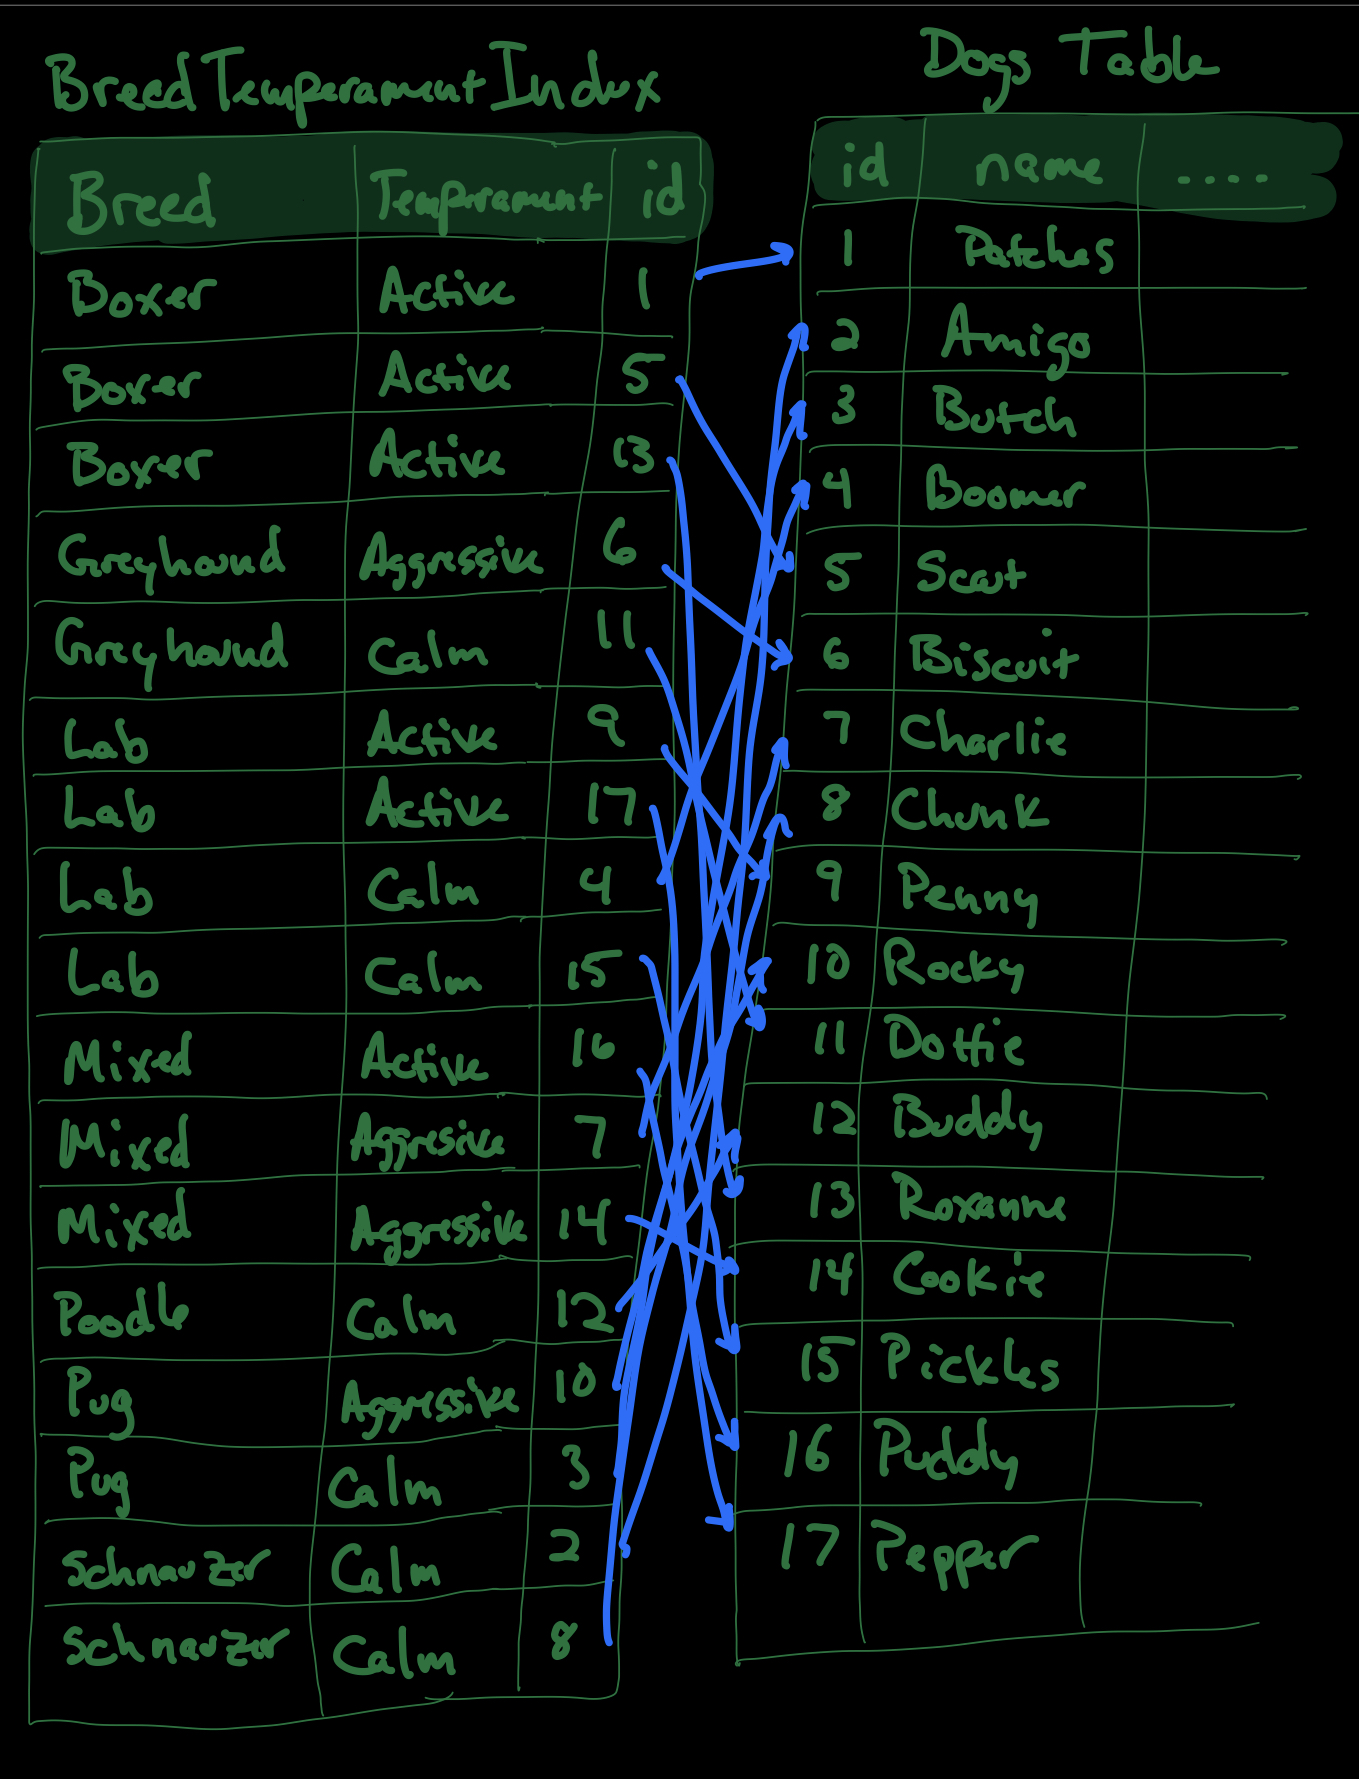 Breed Temperament Index
Breed Temperament id
Boxer Active 1
Boxer Active 5
Boxer Active 13
Greyhound Aggressive 6
Greyhound Calm 11
Lab Active 9
Lab Active 17
Lab Calm 4
Lab Calm 15
Mixed Active 16
Mixed Aggresive 7
Mixed Aggressive 14
Poodle Calm 12
Pug Aggressive 10
Pug Calm 3
Schnauzer Calm 2
Schnauzer Calm 8
Dogs Table
id name ....
1 Patches
2 Amigo
3 Butch
4 Boomer
5 Scout
6 Biscuit
7 Charlie
8 Chunk
9 Penny
10 Rocky
11 Dottie
12 Buddy
13 Roxanne
14 Cookie
15 Pickles
16 Puddy
17 Pepper